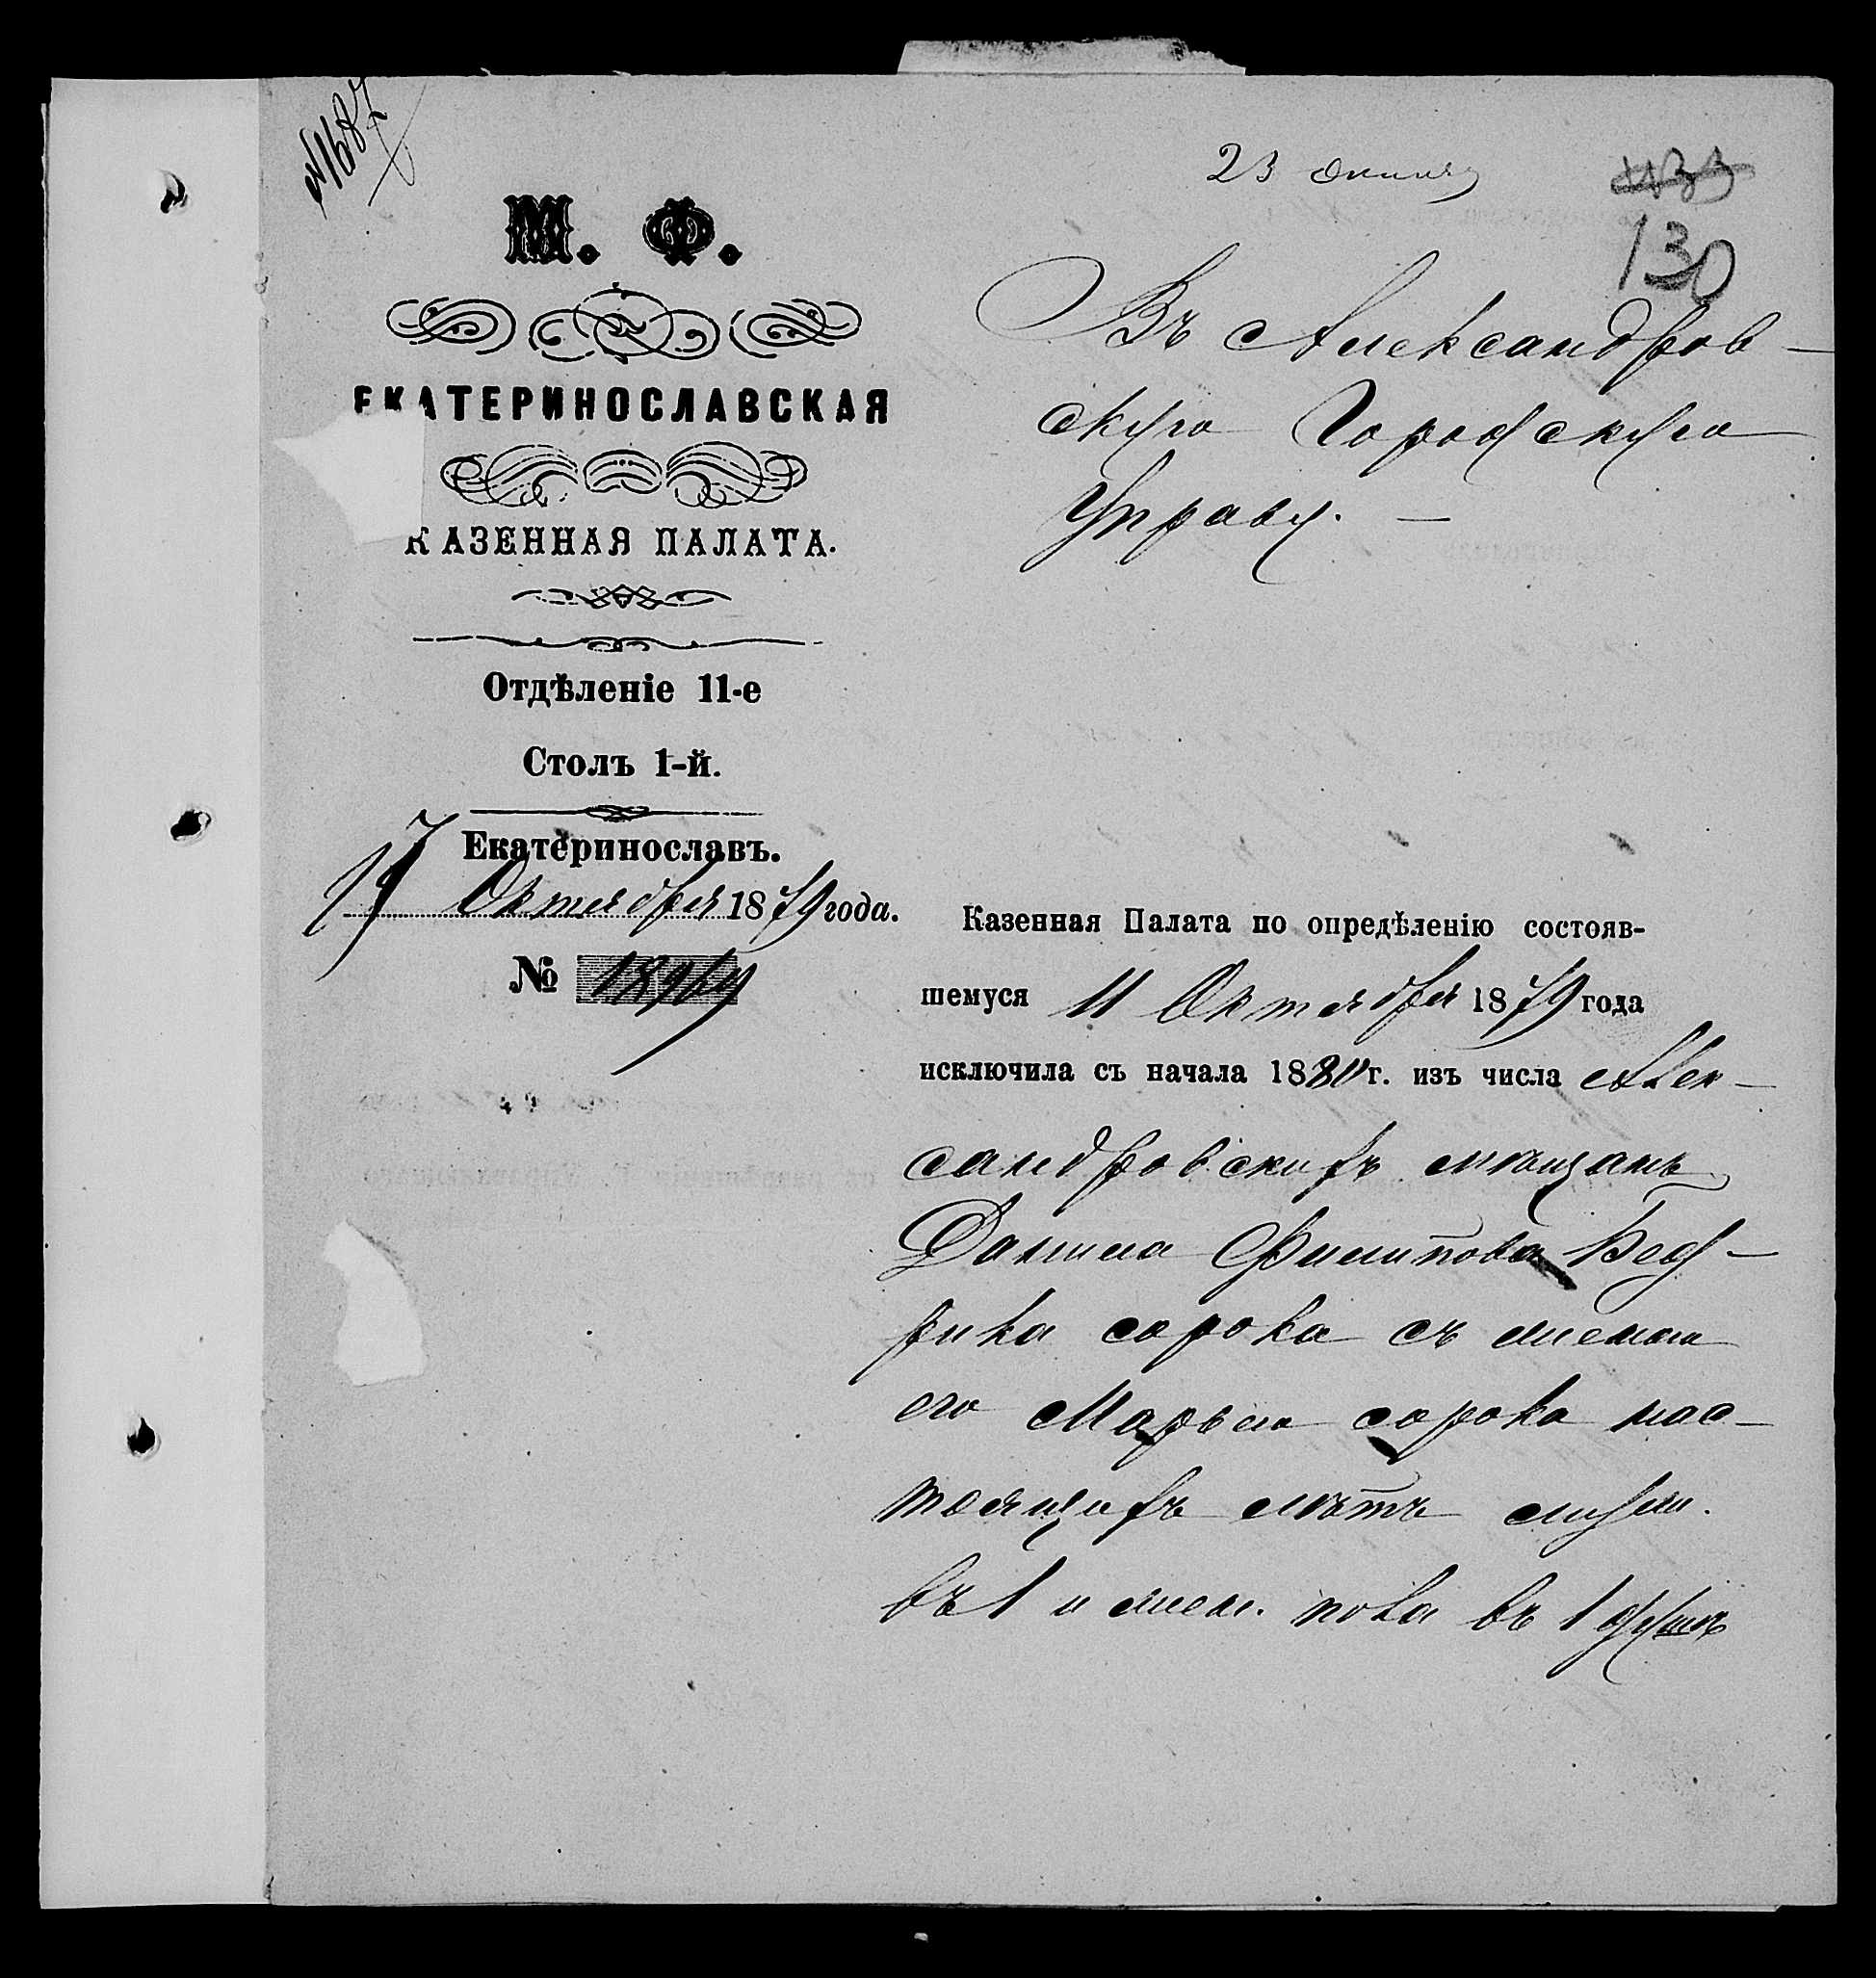 № 1687
23 Октяб
133
130
М. Ф.
ЕКАТЕРИНОСЛАВСКАЯ
КАЗЕННАЯ ПАЛАТА.
Отдѣленіе 11-е
Столъ 1-й.
Екатеринославъ.
17 Октября 1879 года.
№
Въ Александров-
скую Городскую
Управу. —
Казенная Палата по опредѣленію состояв-
шемуся 11 Октября 1879 года
исключила съ начала 1880 г. изъ числа Алек-
сандровскихъ мѣщанъ
Данила Филипова Бед-
рика сорока съ женою
его Марьею сорока нас-
тоящихъ лѣтъ муж.
въ 1 и жен. пола въ 1 душѣ